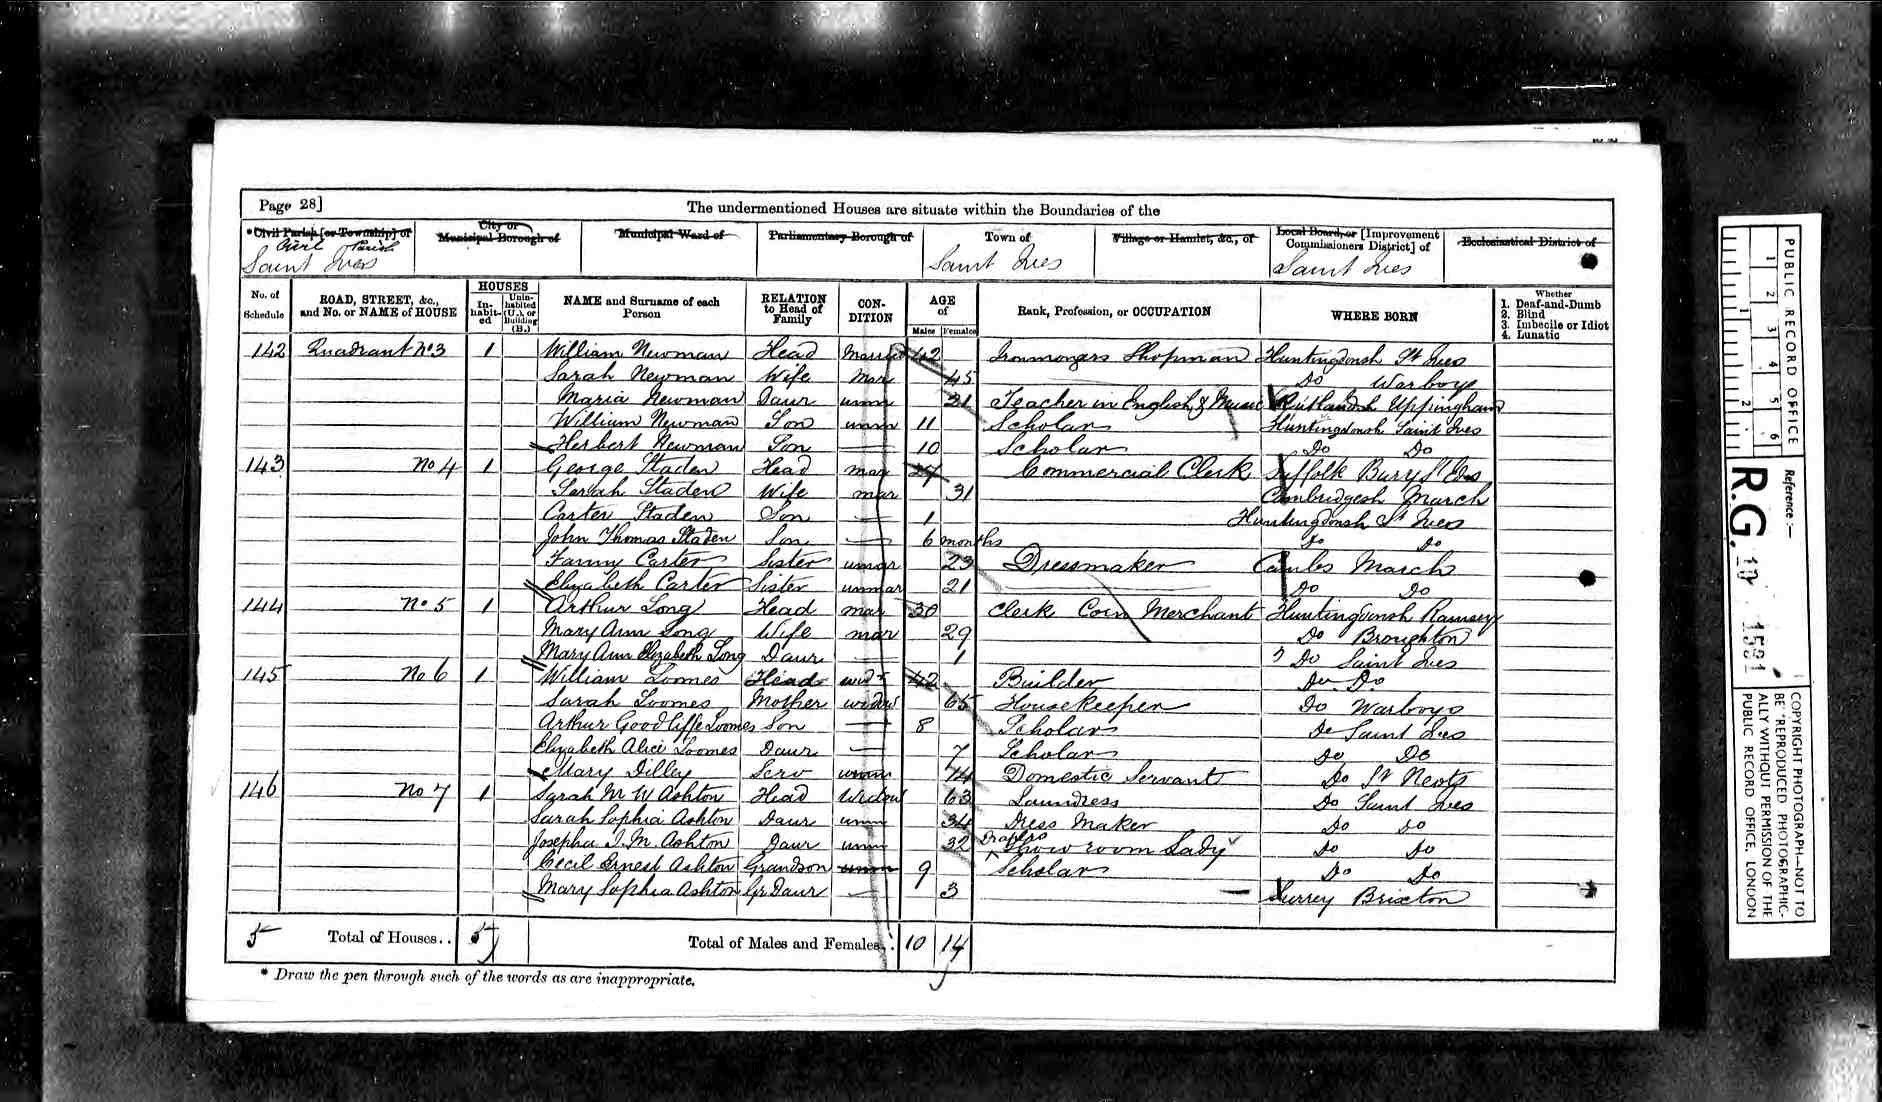 Page 28]
The undermentioned Houses are situate within the Boundaries of the
*Civil Parish [or Township] of
City or Municipal Borough of
Municipal Ward of
Parliamentary Borough of
Town of
Village or Hamlet, &c., of
Local Board, or [Improvement Commissioners District] of
Ecclesiastical District of
Civil Parish
Saint Ives
Saint Ives
Saint Ives
No. of Schedule
ROAD, STREET, &c., and No. or NAME of HOUSE
HOUSES
In-habit-ed
Unin-habited (U.), or Building (B.)
NAME and Surname of each Person
RELATION to Head of Family
CON-DITION
AGE of
Males
Females
Rank, Profession, or OCCUPATION
WHERE BORN
Whether
1. Deaf-and-Dumb
2. Blind
3. Imbecile or Idiot
4. Lunatic
142 Quadrant No 3 1 William Newman Head Married 42 Ironmongers Shopman Huntingdonsh St Ives
Sarah Newman Wife Mar 45 Do Warboys
Maria Newman Daur unm 21 Teacher in English & Music Rutlandsh Uppingham
William Newman Son unm 11 Scholar Huntingdonsh Saint Ives
Herbert Newman Son 10 Scholar Do Do
143 No 4 1 George Staden Head mar 27 Commercial Clerk Suffolk Bury St Eds
Sarah Staden Wife mar 31 Cambridgesh March
Carter Staden Son 1 Huntingdonsh St Ives
John Thomas Staden Son 6 months Do Do
Fanny Carter Sister unmar 23 Dressmaker Cambs March
Elizabeth Carter Sister unmar 21 Do Do
144 No 5 1 Arthur Long Head mar 30 Clerk Corn Merchant Huntingdonsh Ramsey
Mary Ann Long Wife mar 29 Do Broughton
Mary Ann Elizabeth Long Daur 1 Do Saint Ives
145 No 6 1 William Loomes Head widr 42 Builder Do Do
Sarah Loomes Mother widow 65 Housekeeper Do Warboys
Arthur Goodliffe Loomes Son 8 Scholar Do Saint Ives
Elizabeth Alice Loomes Daur 7 Scholar Do Do
Mary Dilley Serv unm Domestic Servant Do St Neots
146 No 7 1 Sarah M W Ashton Head Widow 63 Laundress Do Saint Ives
Sarah Sophia Ashton Daur unm 34 Dress Maker Do Do
Josepha J. M Ashton Daur unm 32 Drapers Show room Lady Do Do
Cecil Ernest Ashton Grandson unm 9 Scholar Do Do
Mary Sophia Ashton Gr Daur 3 Surrey Brixton
5 Total of Houses.. 5 Total of Males and Females.. 10 14
* Draw the pen through such of the words as are inappropriate.
PUBLIC RECORD OFFICE
1 2 3 4 5 6
1 2
Reference:—
R.G.
COPYRIGHT PHOTOGRAPH—NOT TO BE REPRODUCED PHOTOGRAPHICALLY WITHOUT PERMISSION OF THE PUBLIC RECORD OFFICE, LONDON